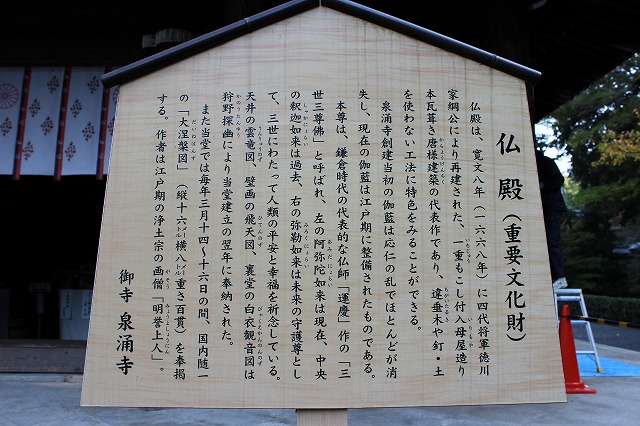 仏殿（重要文化財）
仏殿は、寛文八年（一六六八年）に四代将軍徳川
家綱公により再建された、一重もこし付入母屋造り
本瓦葺き唐様建築の代表作であり、遣垂木や釘・土
を使わない工法に特色をみることができる。
泉涌寺創建当初の伽藍は応仁の乱でほとんどが消
失し、現在の伽藍は江戸期に整備されたものである。
本尊は、鎌倉時代の代表的な仏師「運慶」作の「三
世三尊佛」と呼ばれ、左の阿弥陀如来は現在、中央
の釈迦如来は過去、右の弥勒如来は未来の守護尊とし
て、三世にわたって人類の平安と幸福を祈念している。
天井の雲竜図、壁画の飛天図、裏堂の白衣観音図は
狩野探幽により当堂建立の翌年に奉納された。
また当堂では毎年三月十四～十六日の間、国内随一
の「大涅槃図」（縦十六メートル横八メートル重さ百貫）を奉掲
する。作者は江戸期の浄土宗の画僧「明誉上人」。
御寺 泉涌寺